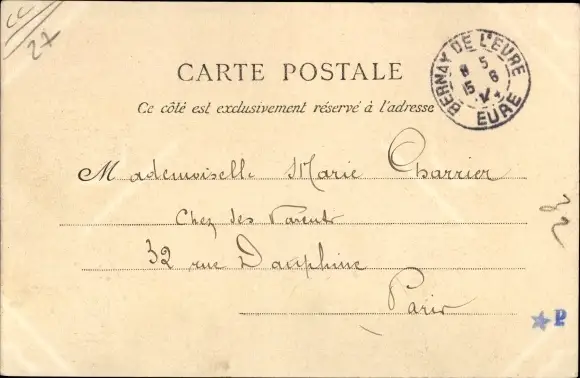 27
CARTE POSTALE
Ce côté est exclusivement réservé à l'adresse
BERNAY DE L'EURE
8 5
15 6
EURE
Mademoiselle Marie Charrier
Chez ses Parents
32 rue Dauphine
Paris
32
P